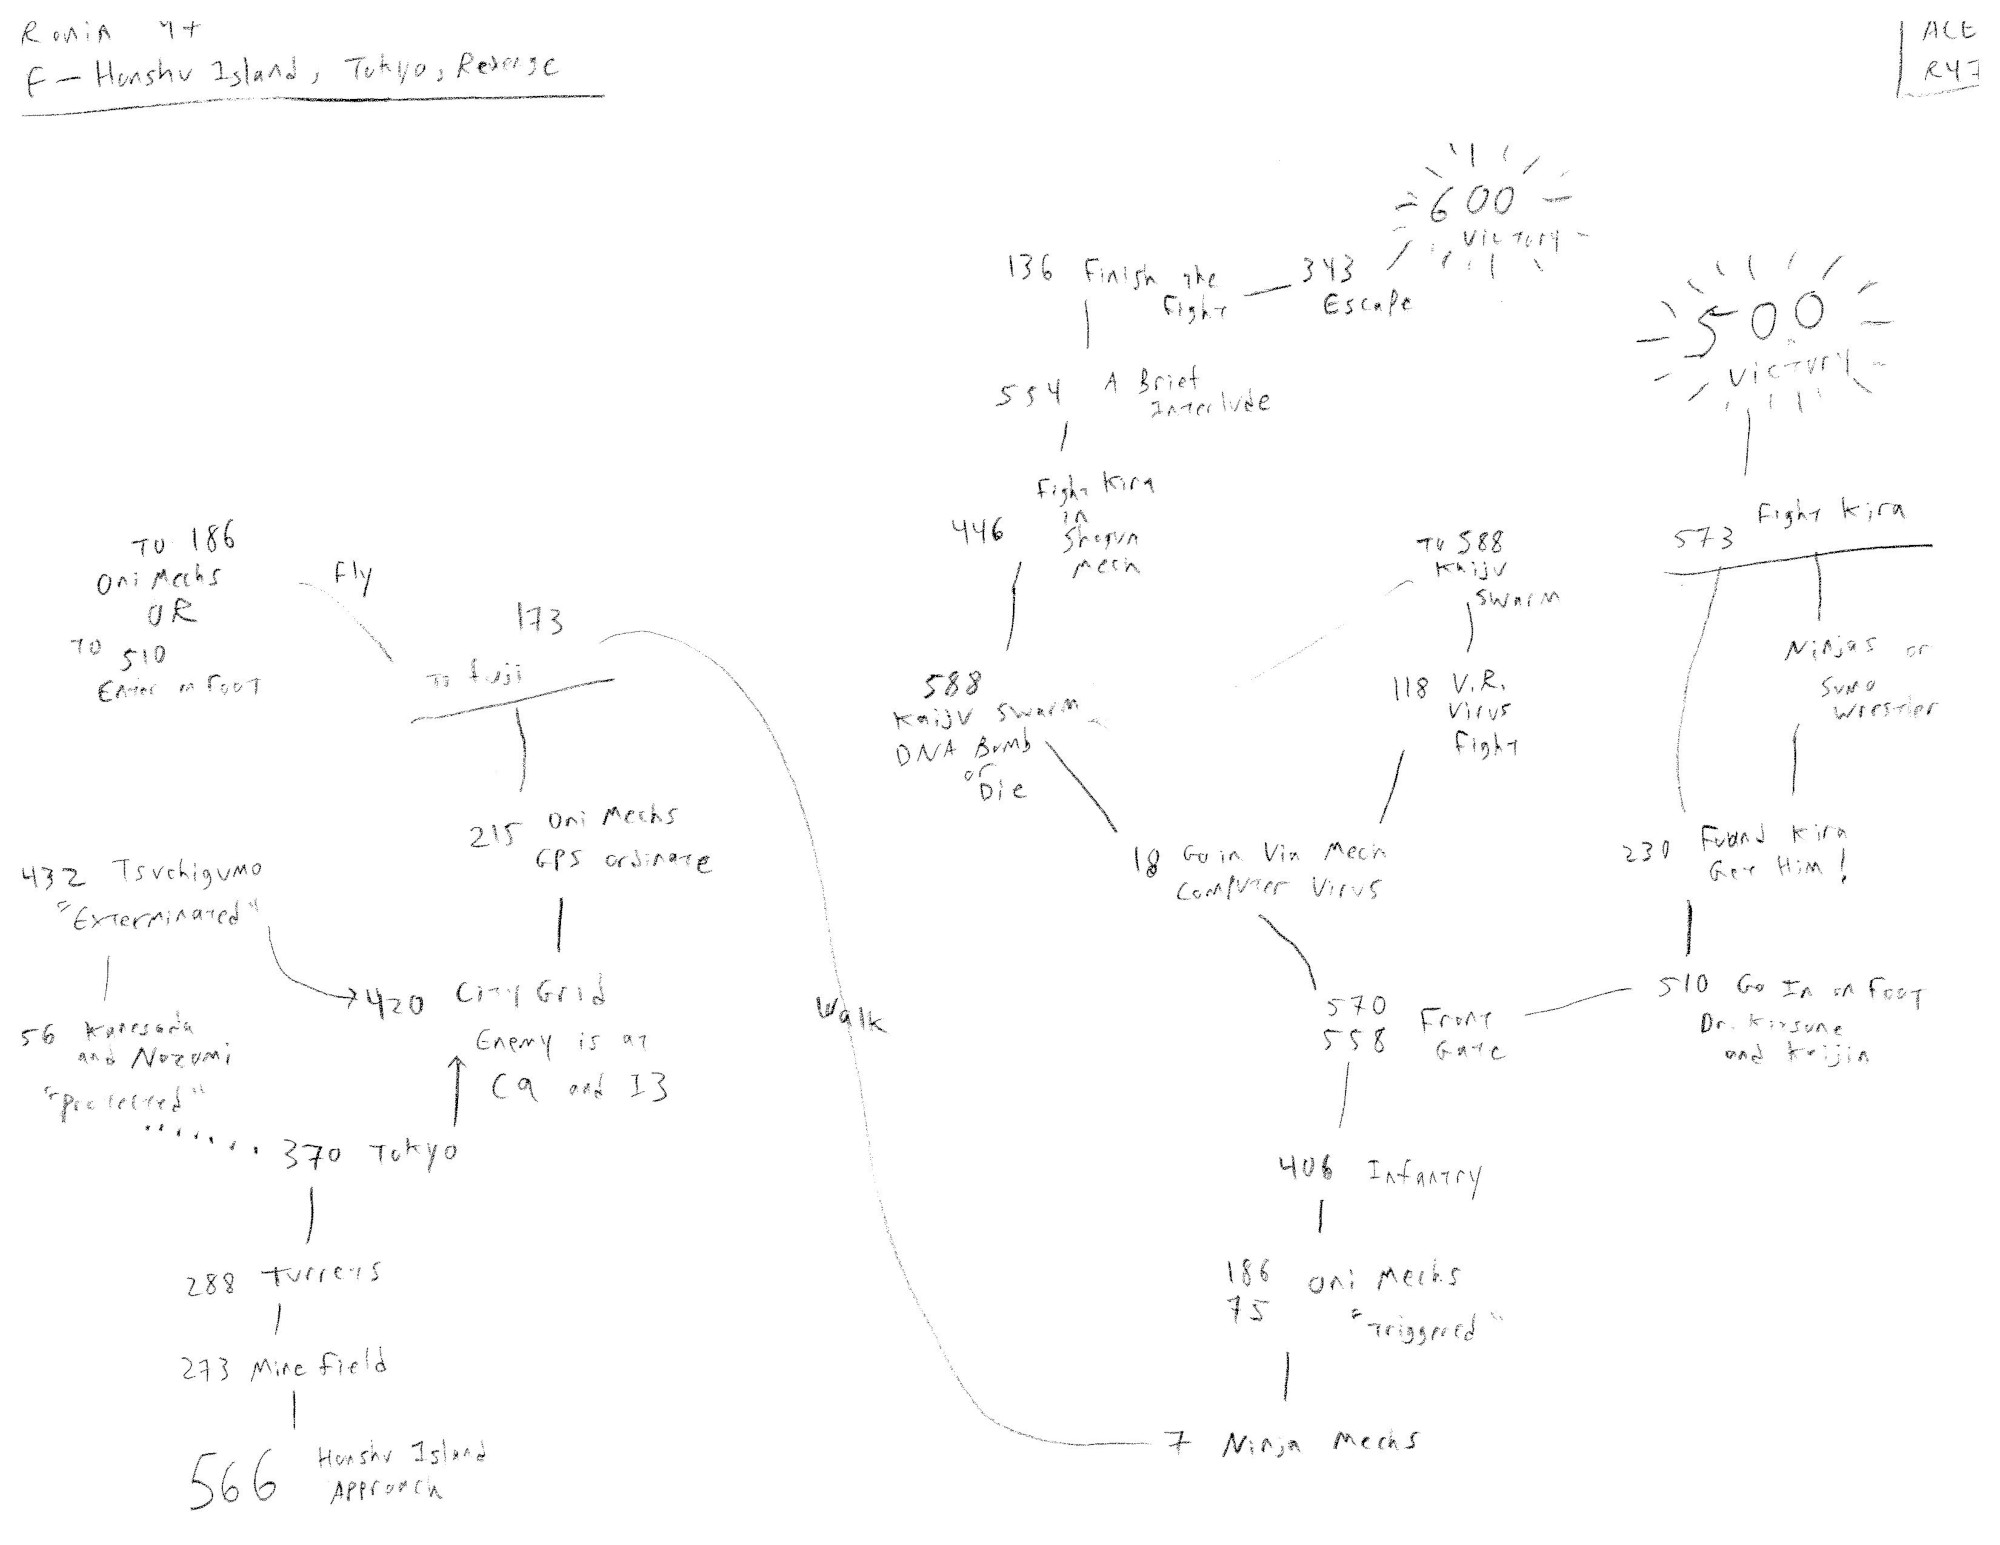 Ronin 47
F - Honshu Island, Tokyo, Revenge
ACE
R47
600
Victory
136 Finish the
Fight
343
Escape
500
Victory
554 A Brief
Interlude
Fight Kira
in
Shogun
Mech
446
Fight Kira
573
To 186
Oni Mechs
OR
To 510
Enter on Foot
Fly
173
To Fuji
To 588
Kaiju
Swarm
Ninjas or
Sumo
Wrestler
588
Kaiju Swarm
DNA Bomb
or
Die
118 V.R.
Virus
Fight
215 Oni Mechs
GPS ordinate
18 Go in Via Mech
Computer Virus
230 Found Kira
Get Him!
432 Tsuchigumo
"Exterminated"
420 City Grid
Enemy is at
C9 and I3
Walk
570
558 Front
Gate
510 Go In on Foot
Dr. Kitsune
and Kaijin
56 Kanesada
and Nozomi
"Protected"
370 Tokyo
406 Infantry
288 Turrets
186
75 Oni Mechs
"Triggered"
273 Mine Field
7 Ninja Mechs
566 Honshu Island
Approach